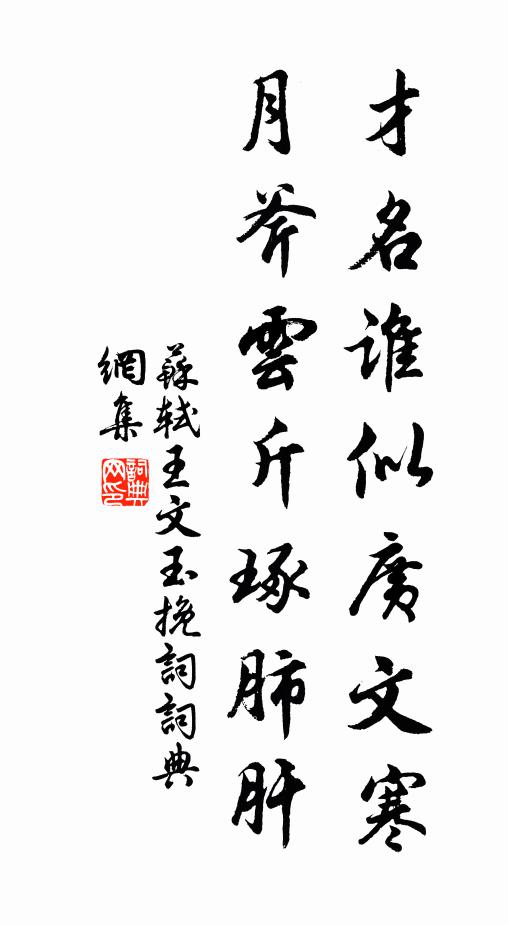 才名誰似廣文寒
月斧雲斤琢肺肝
蘇軾王文玉挽詞詞典
網集
詞典
网印